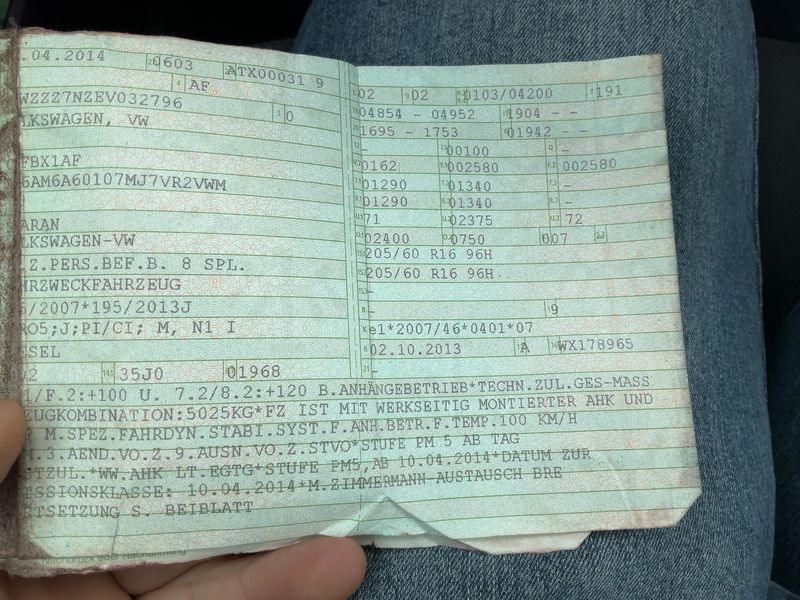 .04.2014 0603 ATX00031 9
AF
WZZZ7NZEV032796
0
LKSWAGEN, VW
FBX1AF
6AM6A60107MJ7VR2VWM
ARAN
LKSWAGEN-VW
.Z.PERS.BEF.B. 8 SPL.
HRZWECKFAHRZEUG
/2007*195/2013J
RO5;J;PI/CI; M, N1 I
ESEL
2 35J0 01968
02 02 0103/04200 191
04854 - 04952 1904 - -
1695 - 1753 01942 - -
- 00100 -
0162 002580 002580
01290 01340 -
01290 01340 -
71 02375 72
02400 0750 007
205/60 R16 96H
205/60 R16 96H
-
- 9
e1*2007/46*0401*07
02.10.2013 A WX178965
-
1/F.2:+100 U. 7.2/8.2:+120 B.ANHÄNGEBETRIEB*TECHN.ZUL.GES-MASS
ZUGKOMBINATION:5025KG*FZ IST MIT WERKSEITIG MONTIERTER AHK UND
M.SPEZ.FAHRDYN.STABI.SYST.F.ANH.BETR.F.TEMP.100 KM/H
M.3.AEND.VO.Z.9.AUSN.VO.Z.STVO*STUFE PM 5 AB TAG
STZUL.*WW.AHK LT.EGTG*STUFE PM5,AB 10.04.2014*DATUM ZUR
ISSIONSKLASSE: 10.04.2014*M.ZIMMERMANN-AUSTAUSCH BRE
TSETZUNG S. BEIBLATT
Nachdruck oder Nachahmung